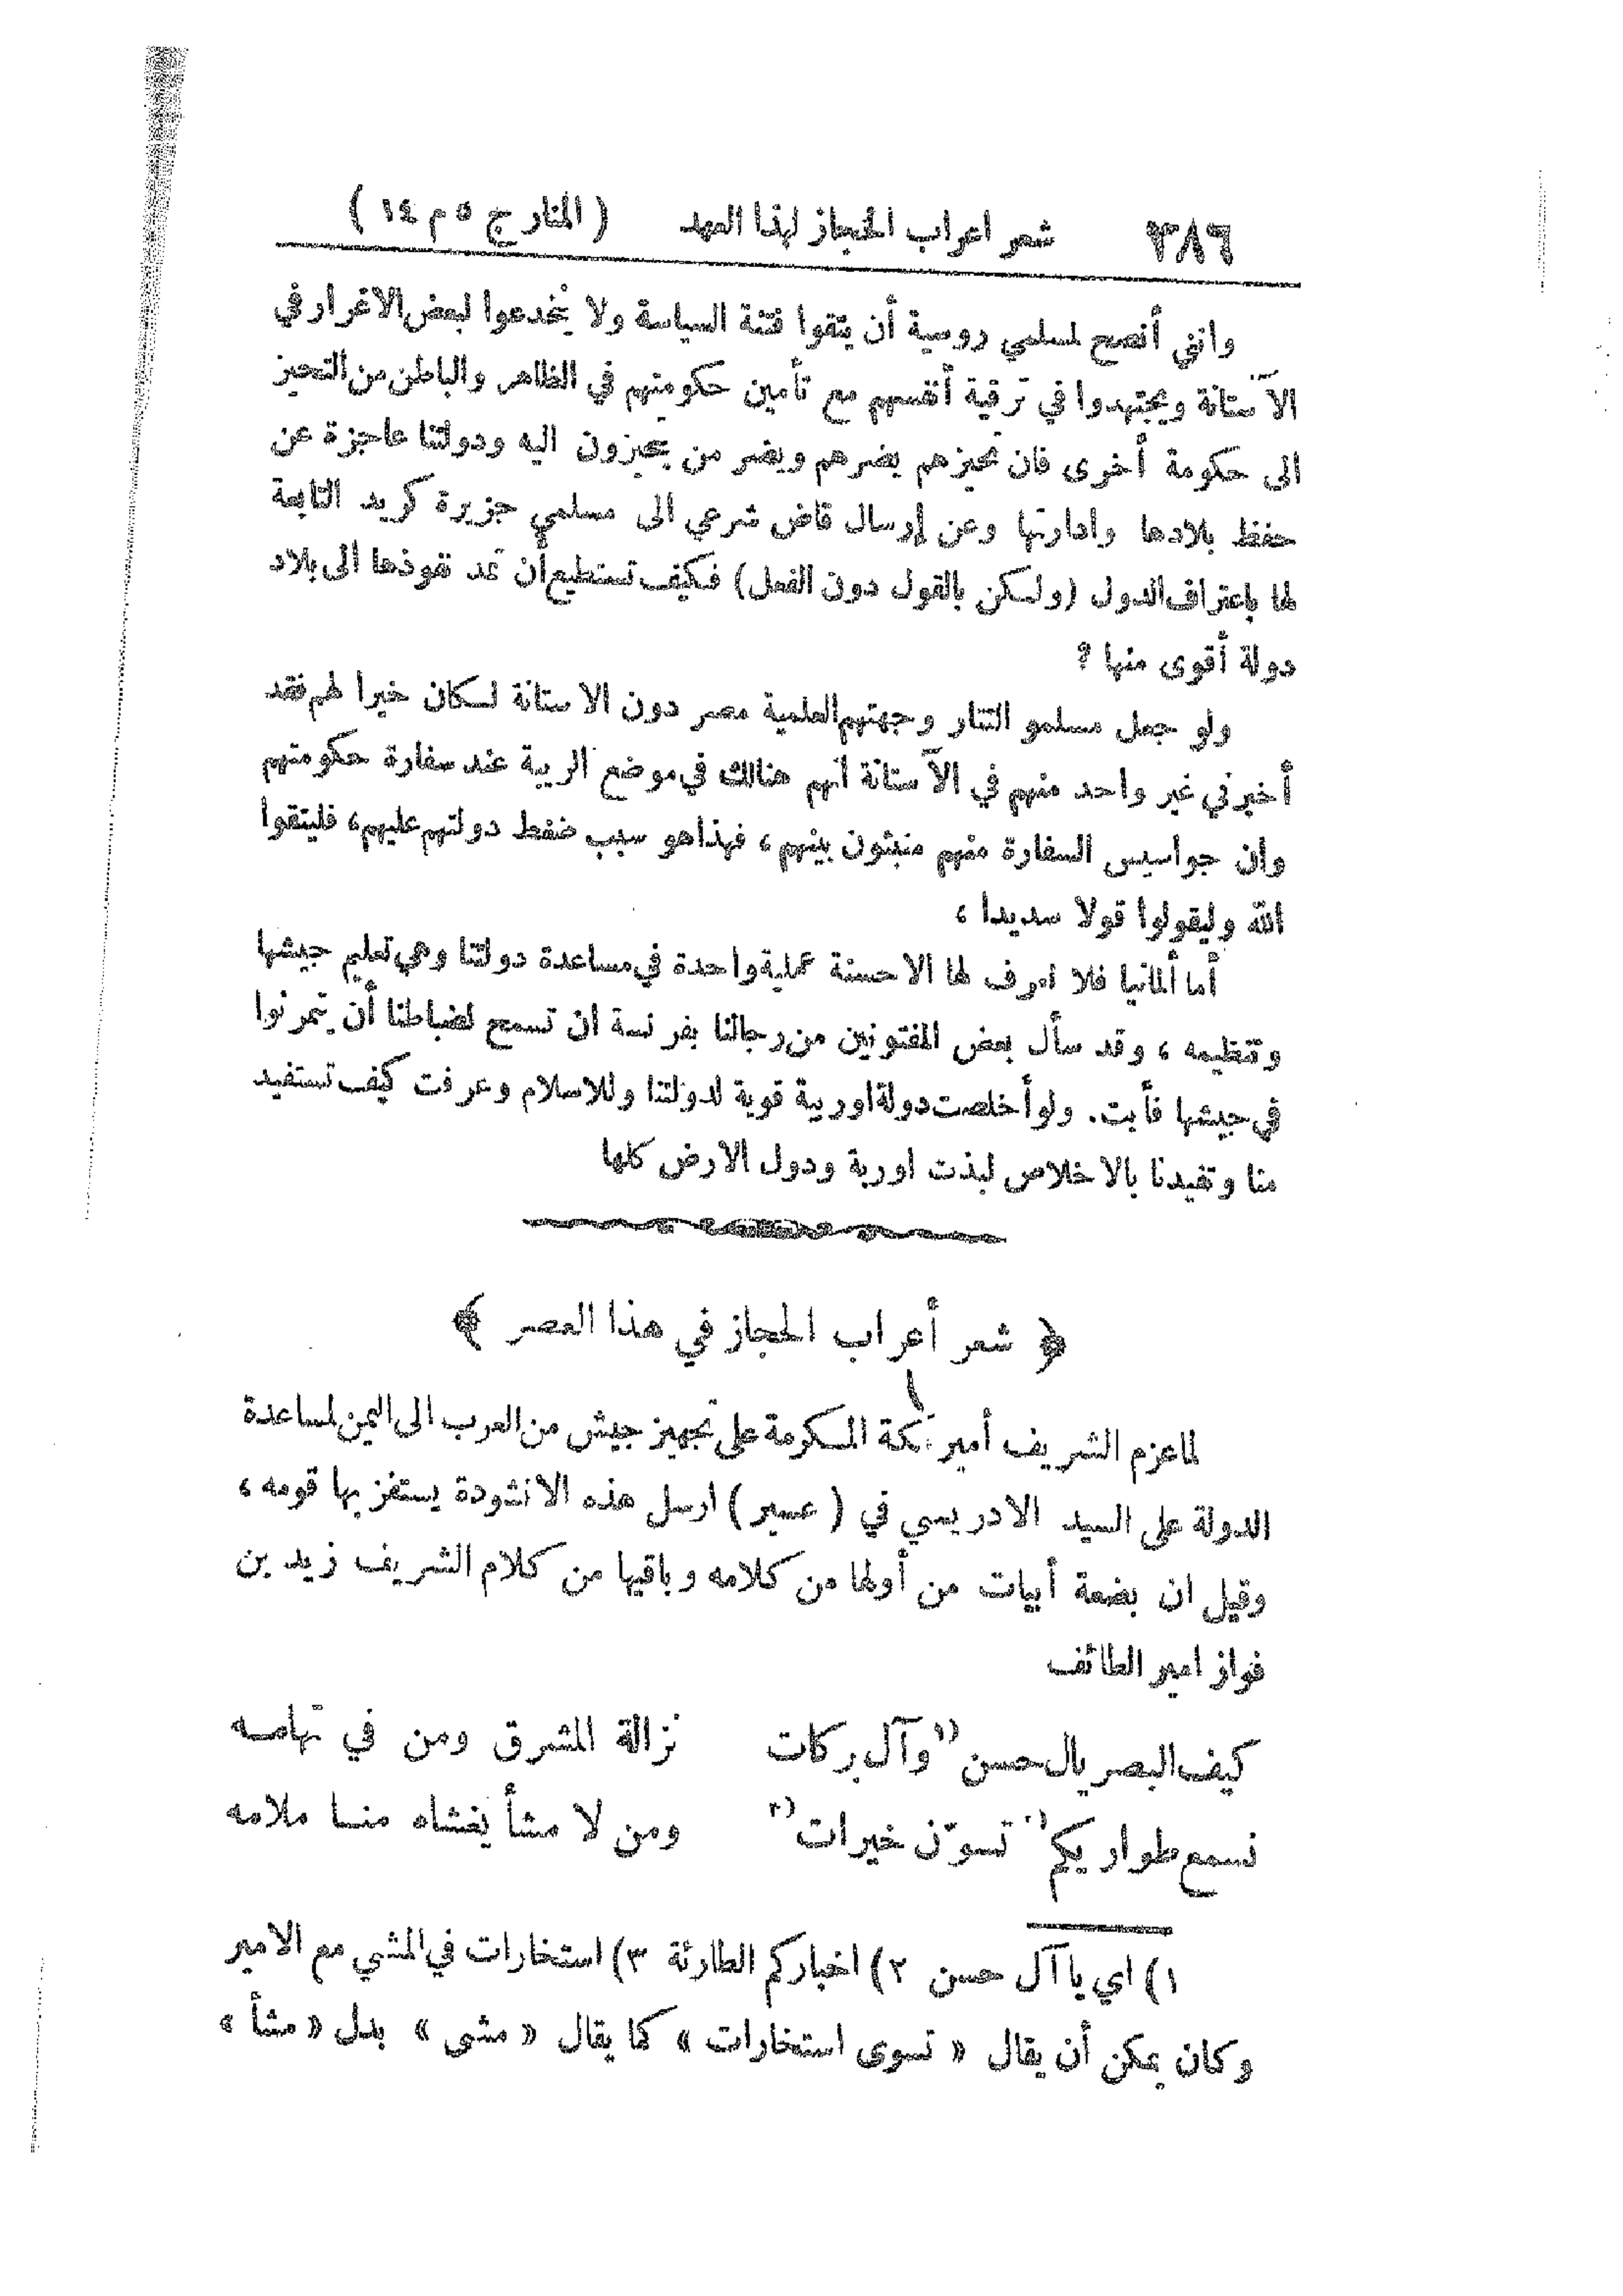 ٣٨٦ شعر اعراب الحجاز لهذا العهد ( المنار ج ٥ م ١٤ )
وانني أنصح لمسلمي روسية أن يتقوا فتنة السياسة ولا يخدعوا لبعض الاغرار في
الآستانة ويجتهدوا في ترقية أنفسهم مع تأمين حكومتهم في الظاهر والباطن من التحيز
الى حكومة أخرى فان تحيزهم يضرهم ويضر من يتحيزون اليه ودولتنا عاجزة عن
حفظ بلادها وادارتها وعن إرسال قاض شرعي الى مسلمي جزيرة كريد التابعة
لها باعتراف الدول (ولكن بالقول دون الفعل) فكيف تستطيع أن تمد نفوذها الى بلاد
دولة أقوى منها ?
ولو جعل مسلمو التتار وجهتهم العلمية مصر دون الاستانة لكان خيرا لهم فقد
أخبرني غير واحد منهم في الآستانة أنهم هنالك في موضع الريبة عند سفارة حكومتهم
وان جواسيس السفارة منهم منبثون بينهم ، فهذا هو سبب ضغط دولتهم عليهم، فليتقوا
الله وليقولوا قولا سديدا ،
أما ألمانيا فلا اعرف لها الا حسنة عملية واحدة في مساعدة دولتنا وهي تعليم جيشها
وتنظيمه ، وقد سأل بعض المفتونين من رجالنا بفرنسة ان تسمح لضباطنا أن يتمرنوا
في جيشها فأبت. ولو أخلصت دولة اوربية قوية لدولتنا وللاسلام وعرفت كيف تستفيد
منا وتفيدنا بالاخلاص لبذت اوربة ودول الارض كلها
﴿ شعر أعراب الحجاز في هذا العصر ﴾
لما عزم الشريف أمير مكة المكرمة على تجهيز جيش من العرب الى اليمن لمساعدة
الدولة على السيد الادريسي في ( عسير ) ارسل هذه الانشودة يستفز بها قومه ،
وقيل ان بضعة أبيات من أولها من كلامه وباقيها من كلام الشريف زيد بن
فواز امير الطائف
كيف البصر يال حسن ١) وآل بركات نزالة المشرق ومن في تهامه
نسمع طواريكم ٢) تسوّن خيرات ٣) ومن لا مشأ يغشاه منا ملامه
١) اي يا آل حسن ٢) اخباركم الطارئة ٣) استخارات في المشي مع الامير
وكان يمكن أن يقال « تسوى استخارات » كما يقال « مشى » بدل « مشأ »